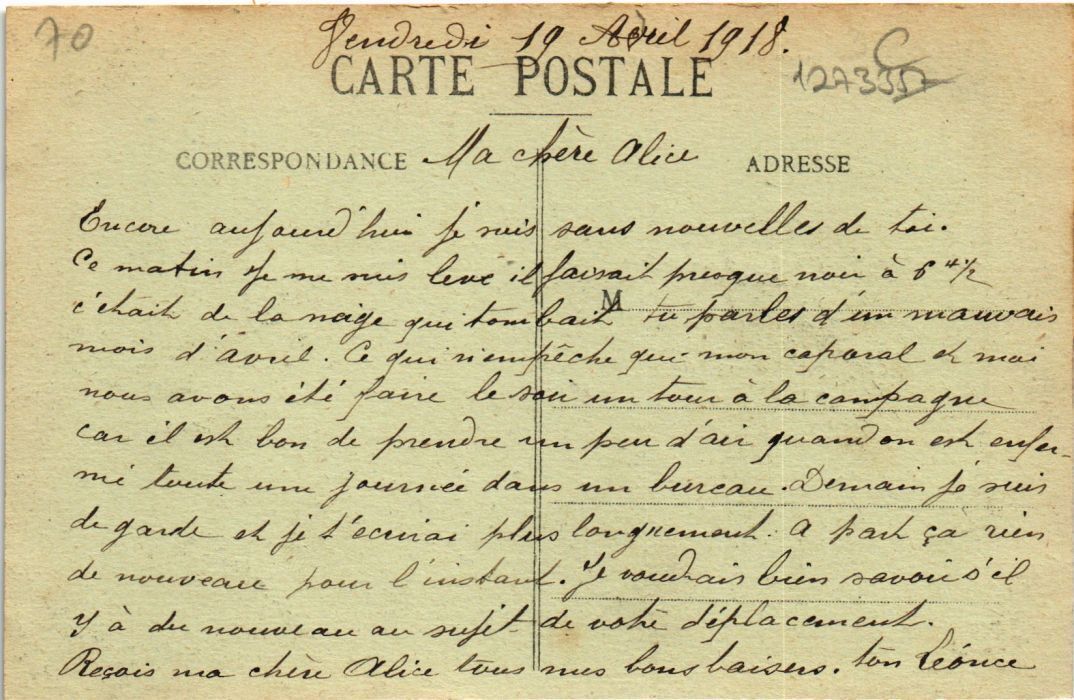 70
Vendredi 19 Avril 1918.
CARTE POSTALE
127335
C
CORRESPONDANCE Ma chère Alice ADRESSE
Encore aujourd'hui je suis sans nouvelles de toi.
Ce matin je me suis levé il faisait presque noir à 6 h 1/2
M
c'était de la neige qui tombait tu parles d'un mauvais
mois d'avril. Ce qui n'empêche que mon caporal et moi
nous avons été faire le soir un tour à la campagne
car il est bon de prendre un peu d'air quand on est enfer-
mé toute une journée dans un bureau. Demain je suis
de garde et je t'écrirai plus longuement. A part ça rien
de nouveau pour l'instant. Je voudrais bien savoir s'il
y à du nouveau au sujet de votre déplacement.
Reçois ma chère Alice tous mes bons baisers. ton Léonce